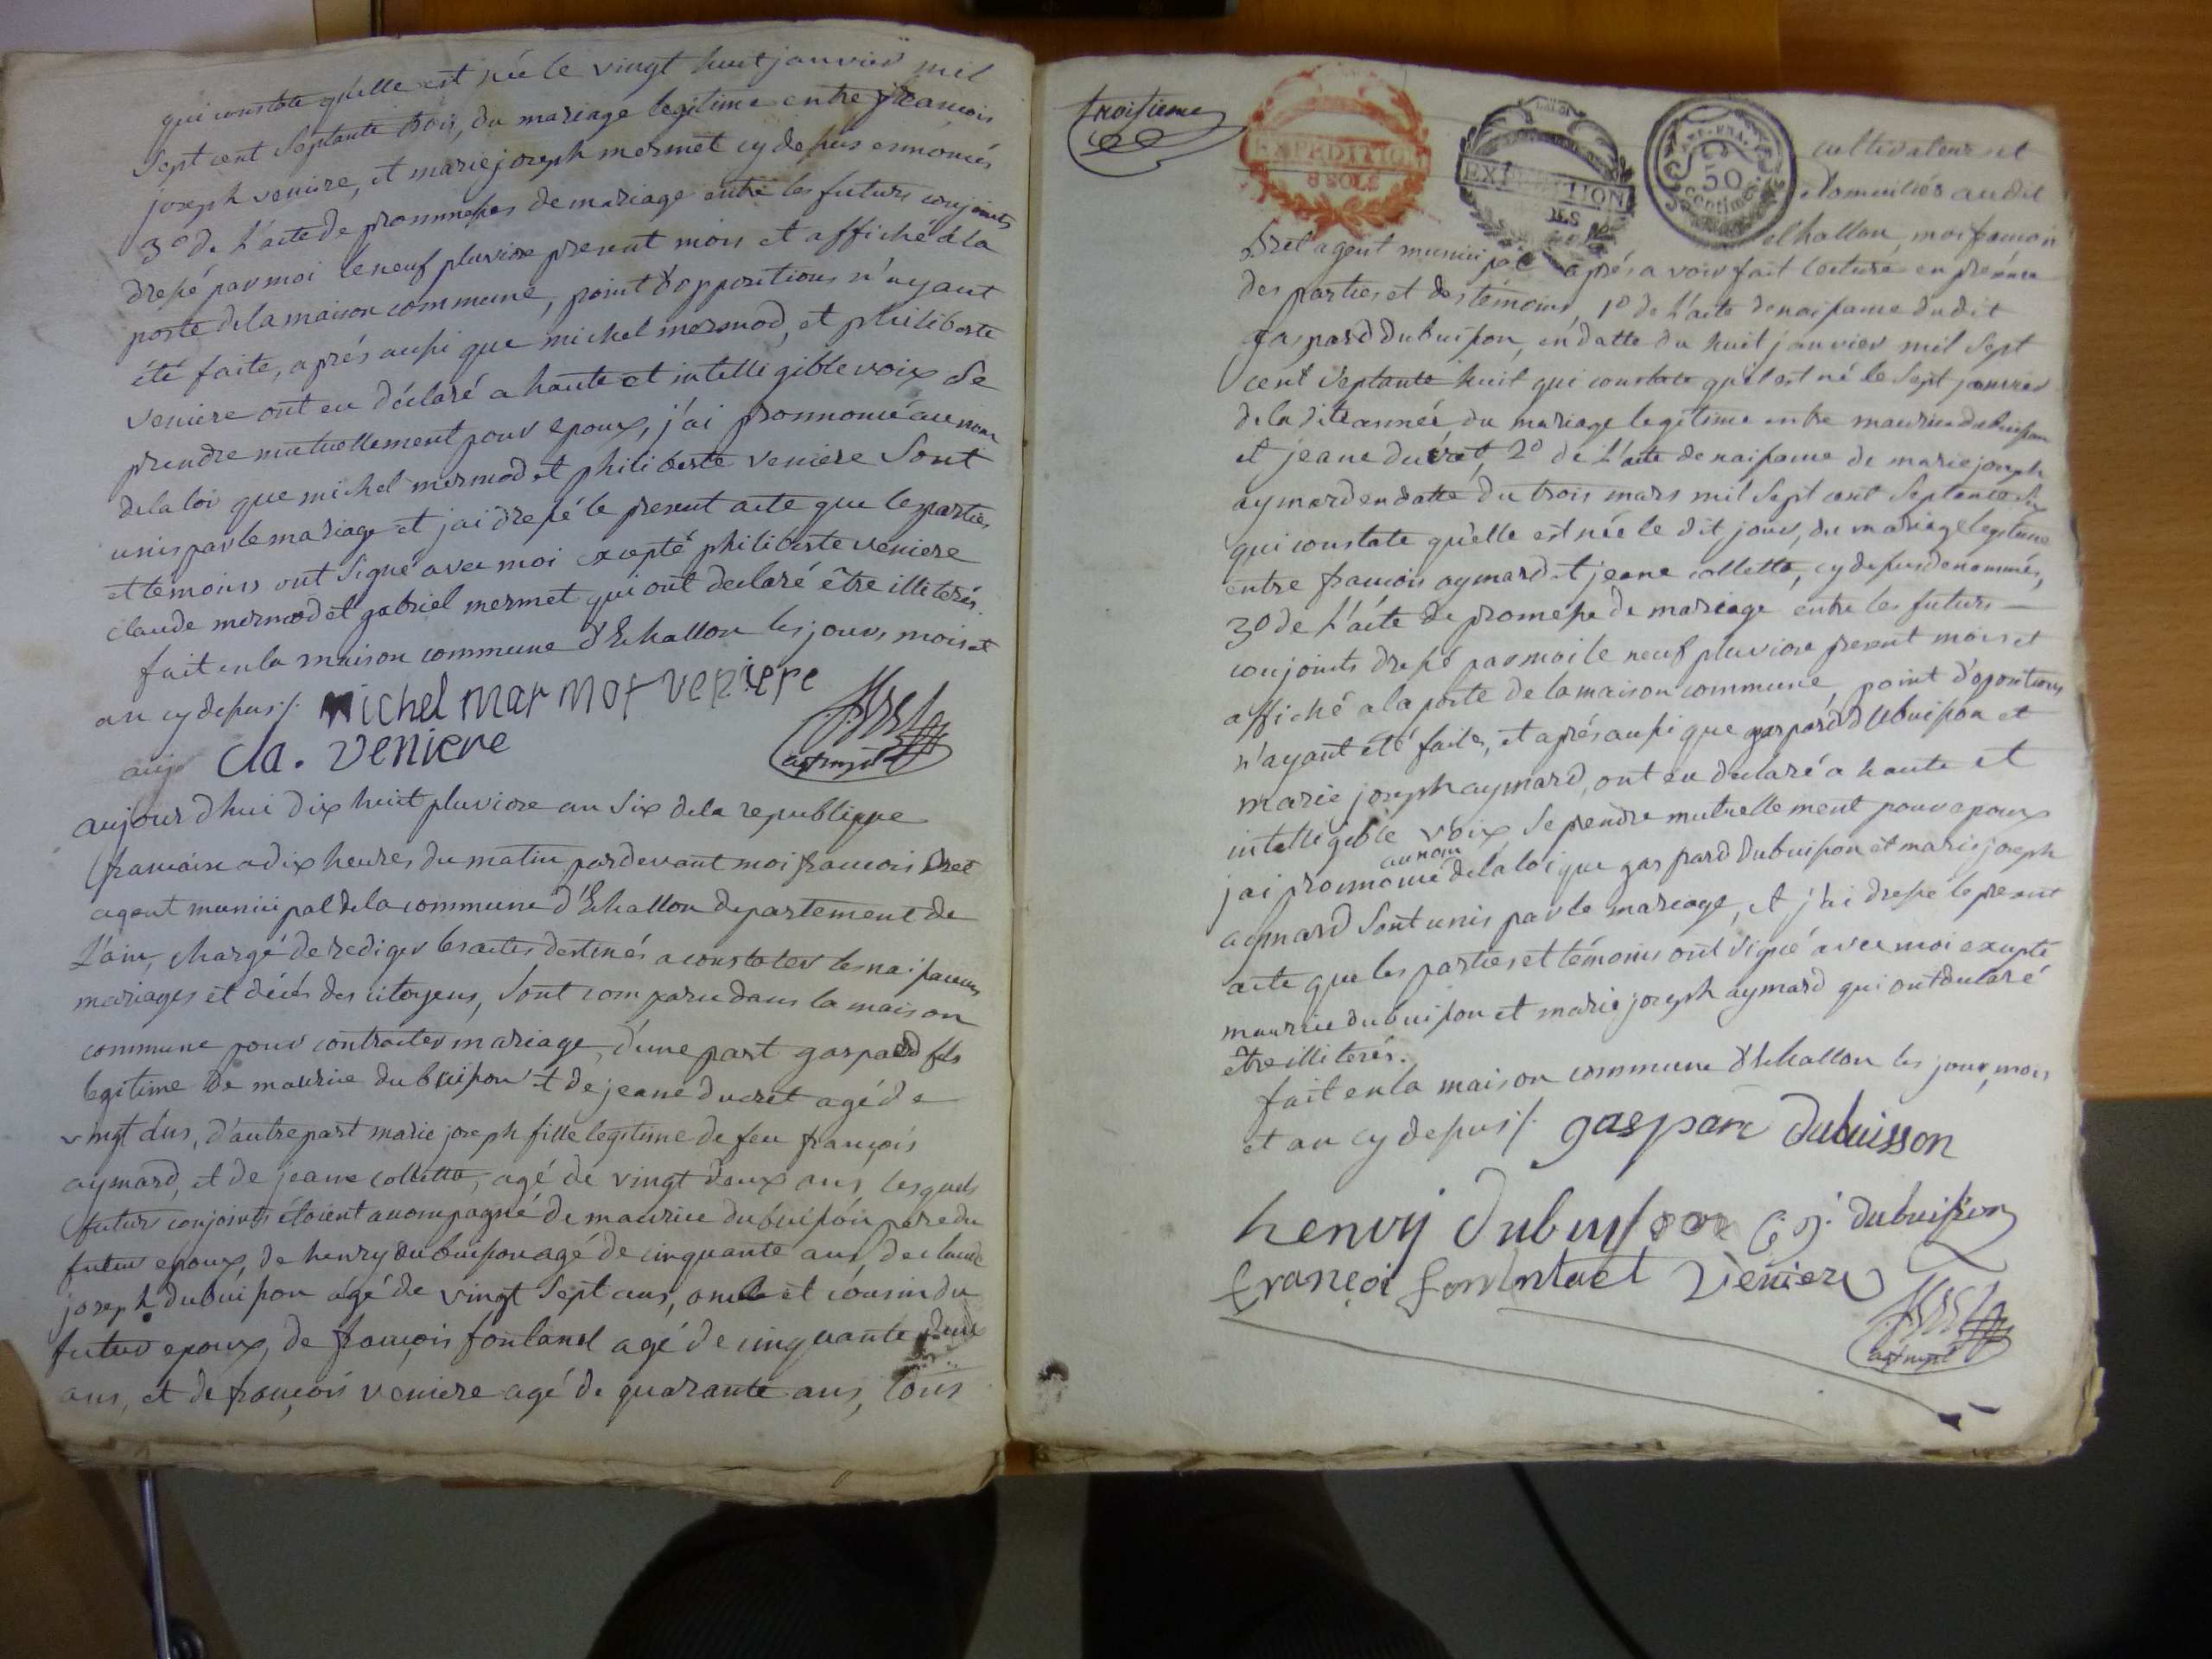 qui constate quelle est née le vingt huit janvier mil
sept cent septante trois, du mariage legitime entre françois
joseph veniere, et marie joseph mermet cy depus ennomés
3º de l'acte de prommesses de mariage entre les futurs conjoints
dressé par moi le neuf pluviose present mois et affiché a la
porte de la maison commune, point d'oppositions n'ayant
été faite, aprés aussi que michel mermod, et philiberte
veniere ont eu déclaré a haute et intelligible voix se
prendre mutuellement pour epoux, j'ai pronnoncé au nom
de la loi que michel mermod et philiberte veniere sont
unis par le mariage et j'ai dressé le present acte que les parties
et temoins ont signé avec moi excepté philiberte veniere
claude mermod et gabriel mermet qui ont declaré être illiterés.
fait en la maison commune d'Echallon les jours mois et
an cy depus ./. Michel Mar Mot veniere
aujo cla. veniere
agt mpl
aujourdhui dix huit pluviose an six de la republique
francaise a dix heures du matin pardevant moi francois Dret
agent municipal de la commune d'Echallon departement de
l'ain, chargé de rediger les actes destinés a constater les naissances
mariages et décés des citoyens, sont comparu dans la maison
commune pour contracter mariage, d'une part gaspard fils
legitime de maurice dubuisson et de jeane ducret agé de
vingt ans, d'autre part marie joseph fille legitime de feu françois
aymard, et de jeane collette, agé de vingt deux ans, lesquels
futurs conjoints étoient accompagné de maurice dubuisson pere du
futur epoux, de henry dubuisson agé de cinquante ans, de claude
joseph dubuisson agé de vingt sept ans, oncle et cousin du
futur epoux, de françois fontanel agé de cinquante deux
ans, et de françois veniere agé de quarante ans, tous
troisieme
EXPEDITION
8 SOLS
EXPEDITION
50
Centimes
cultivateurs et
domiciliés audit
echallon, moi francois
Dret agent municipal aprés avoir fait lecture en présence
des parties et des témoins, 1º de l'acte de naissance dudit
gaspard dubuisson, en datte du huit janvier mil sept
cent septante huit qui constate qu'il est né le sept janvier
de la dite année du mariage legitime entre maurice dubuisson
et jeane ducret, 2º de l'acte de naissance de marie joseph
aymard en datte du trois mars mil sept cent septante six
qui constate qu'elle est née le dit jour, du mariage legitime
entre francois aymard et jeane collette, cy depus denommés,
3º de l'acte de promesse de mariage entre les futurs
conjoints dressé par moi le neuf pluviose present mois et
affiché a la porte de la maison commune, point d'opositions
n'ayant été faites, et aprés aussi que gaspard dubuisson et
marie joseph aymard, ont eu declaré a haute et
intelligible voix se prendre mutuellement pour epoux
j'ai pronnoncé au nom de la loi que gaspard dubuisson et marie joseph
aymard sont unis par le mariage, et j'ai dressé le present
acte que les parties et témoins ont signé avec moi excepté
maurice dubuisson et marie joseph aymard qui ont declaré
être illiterés.
fait en la maison commune d'Echallon les jour, mois
et an cy depus ./. gaspare dubuisson
henry dubuisson C. j. dubuisson
françoi fontntaet veniere
agt mpl